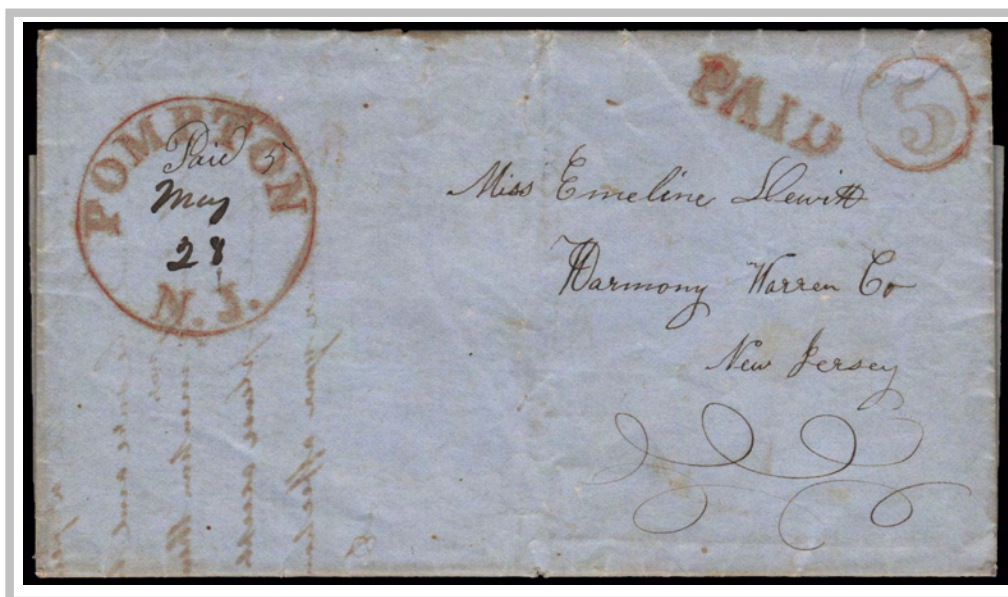 POMPTON
Paid 5
May
28
N. J.
PAID
paid
5
Miss Emeline Dewitt
Harmony Warren Co
New Jersey